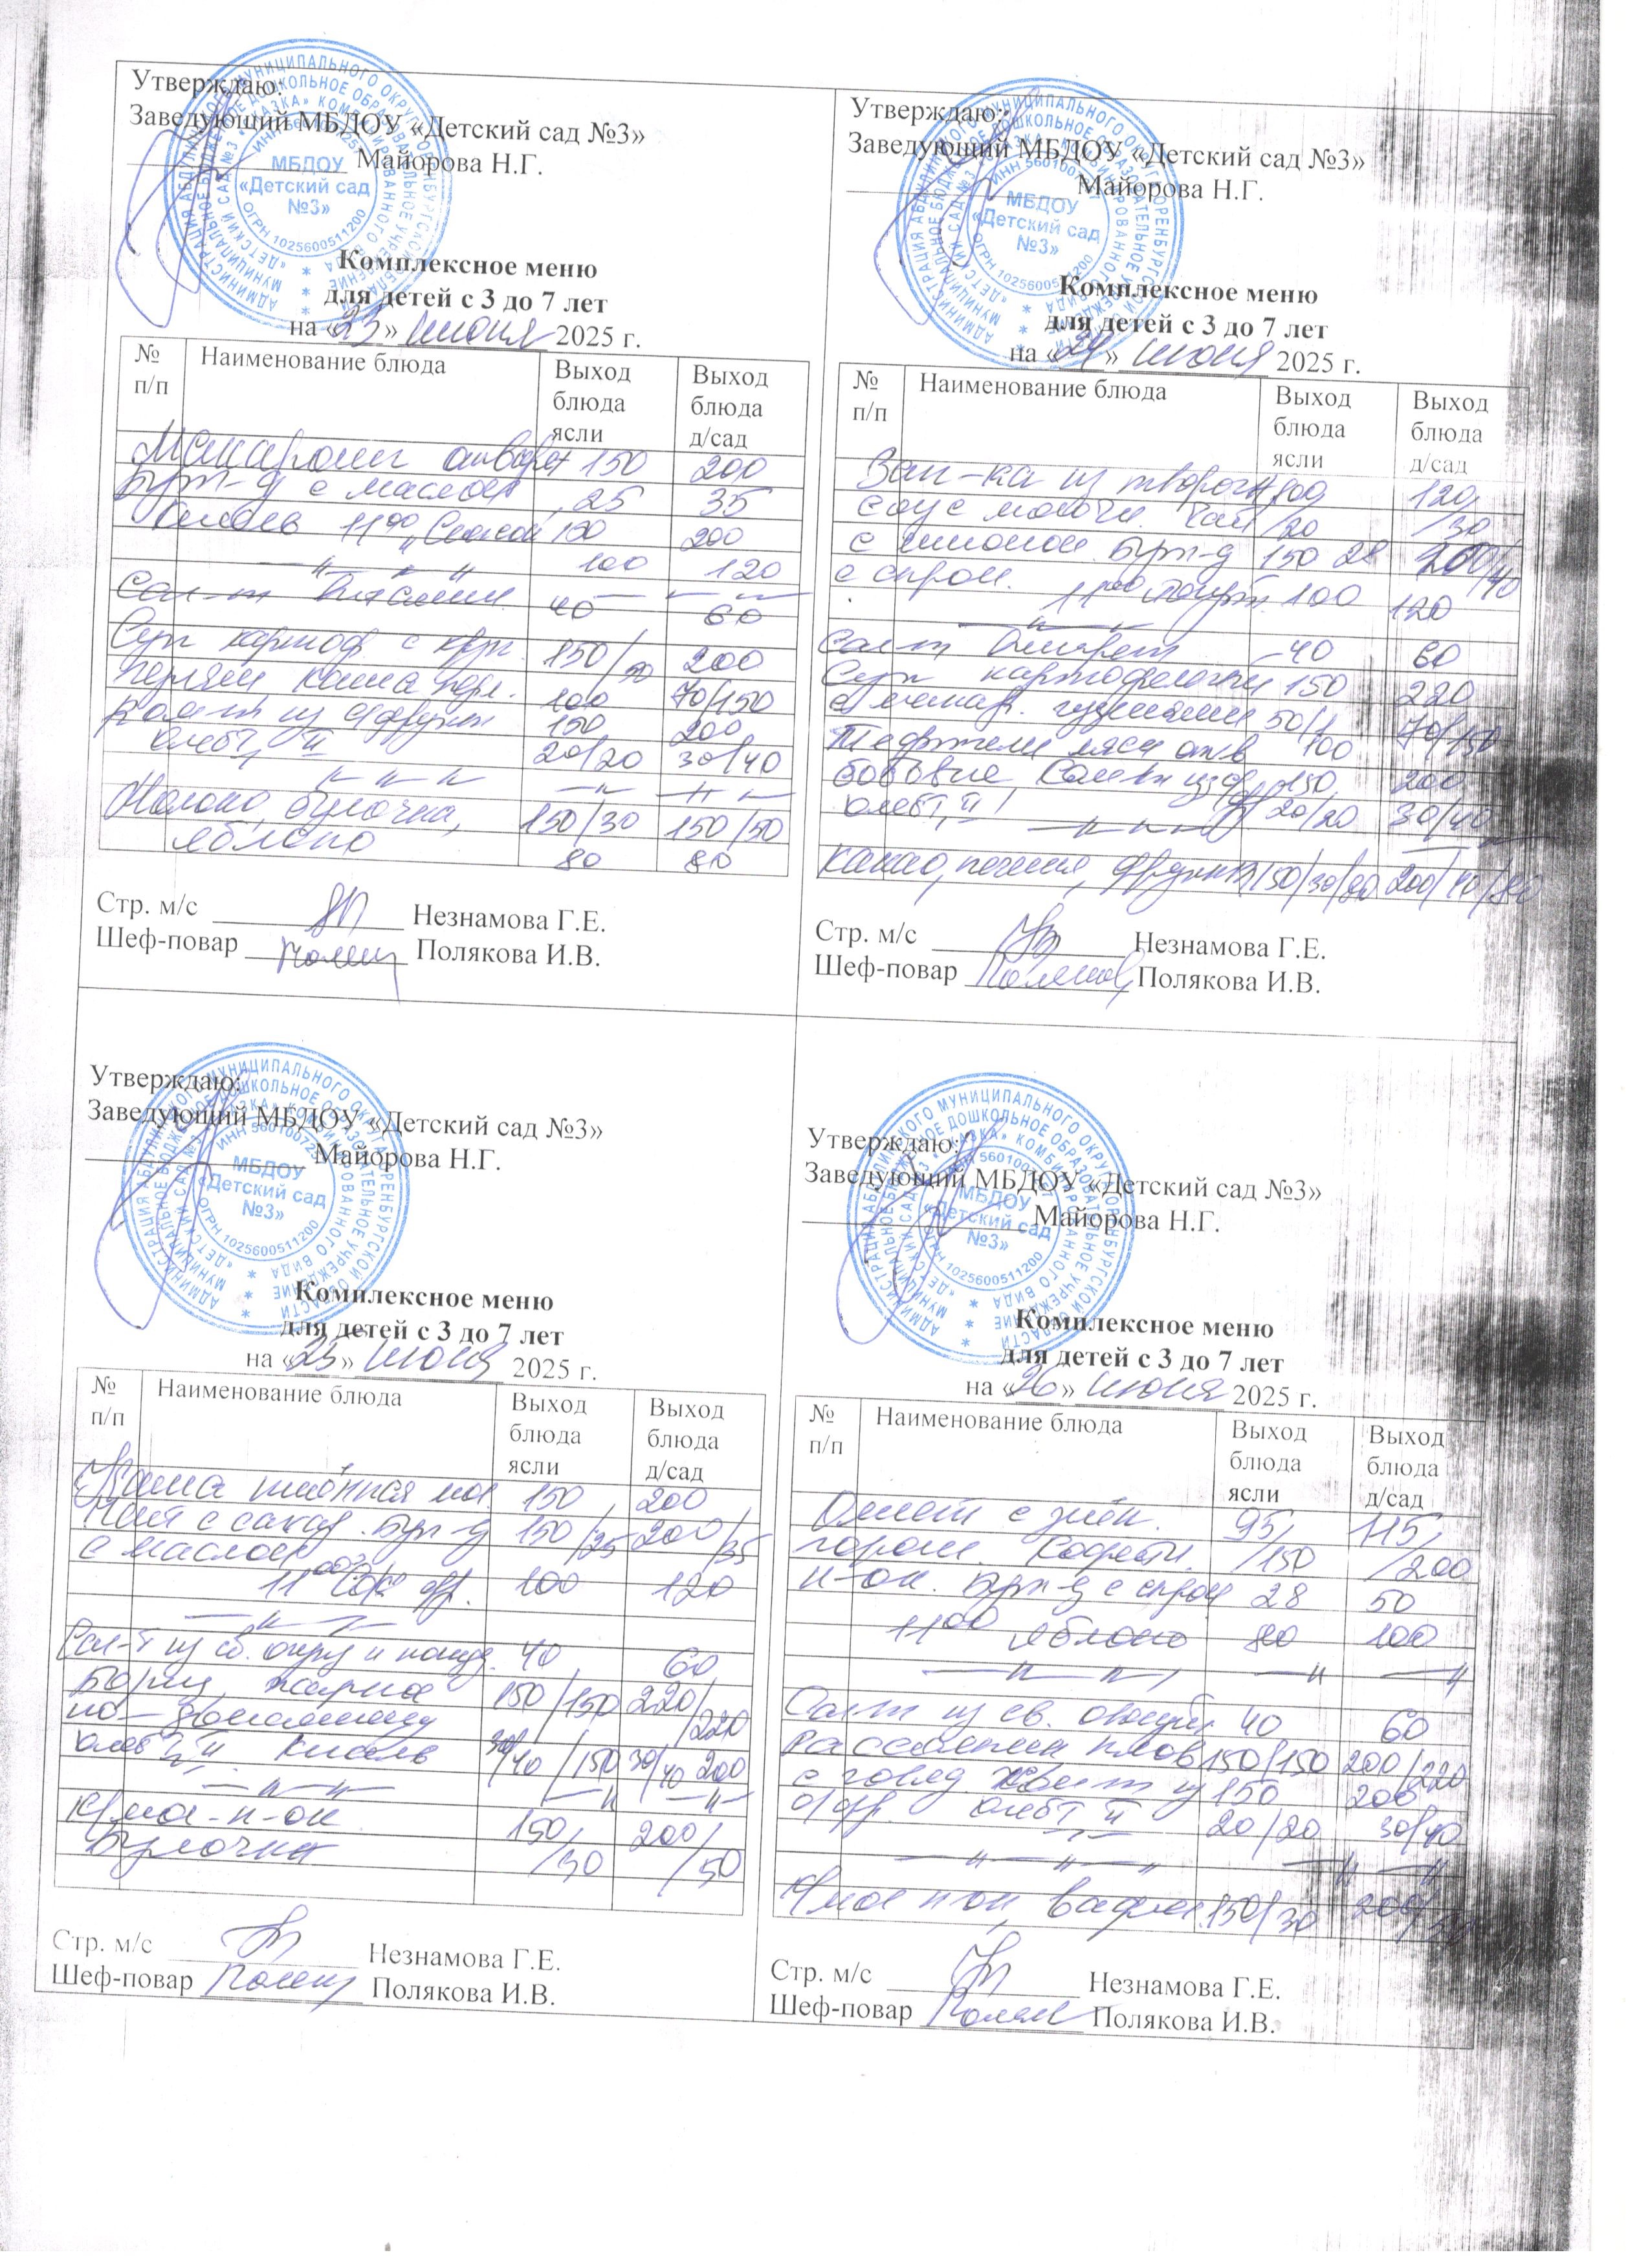 Утверждаю:
Заведующий МБДОУ «Детский сад №3»
Майорова Н.Г.
МБДОУ
«Детский сад
№3»
ОГРН 1025600511200
Комплексное меню
для детей с 3 до 7 лет
на «23» июня 2025 г.
№ п/п Наименование блюда Выход блюда ясли Выход блюда д/сад
Макароны отварн 150 200
Бут-д с маслом 25 35
11 00 150 200
100 120
40 60
Суп картоф с круп. 150/ 200
каша 100 70/150
из 150 200
хлеб I, II 20/20 30/40
Молоко, булочка, 150/30 150/50
яблоко 80 80
Стр. м/с Незнамова Г.Е.
Шеф-повар Полякова И.В.
Утверждаю:
Заведующий МБДОУ «Детский сад №3»
Майорова Н.Г.
МБДОУ
«Детский сад
№3»
Комплексное меню
для детей с 3 до 7 лет
на «24» июня 2025 г.
№ п/п Наименование блюда Выход блюда ясли Выход блюда д/сад
Зап-ка из творога 120
соус молочн. Чай /20 /30
с лимоном Бут-д 150 28 200/40
с сыром. 11 00 100 120
Сал-т Винегрет 40 60
Суп картофельный 150 220
50/ 70/150
Тефтели мяса отв 100
бобовые, 150 200
хлеб I, II 20/20 30/40
какао, печенье, фрукты 150/30/80 200/40/80
Стр. м/с Незнамова Г.Е.
Шеф-повар Полякова И.В.
Утверждаю:
Заведующий МБДОУ «Детский сад №3»
Майорова Н.Г.
МБДОУ
«Детский сад
№3»
ОГРН 1025600511200
Комплексное меню
для детей с 3 до 7 лет
на «25» июня 2025 г.
№ п/п Наименование блюда Выход блюда ясли Выход блюда д/сад
Каша пшённая мол. 150 200
Чай с сахар. Бут-д 150/25 200/35
с маслом
11 00 Сок фр. 100 120
Сал-т из св. огур и помид. 40 60
Борщ, жаркое 150/150 220/220
по-домашнему
хлеб I, II Кисель 30/40/150 30/40 200
150 200/
Булочка /30 /50
Стр. м/с Незнамова Г.Е.
Шеф-повар Полякова И.В.
Утверждаю:
Заведующий МБДОУ «Детский сад №3»
Майорова Н.Г.
МБДОУ
«Детский сад
№3»
Комплексное меню
для детей с 3 до 7 лет
на «26» июня 2025 г.
№ п/п Наименование блюда Выход блюда ясли Выход блюда д/сад
Омлет с зелён. 95/ 115/
горош. Кофейн. /150 /200
н-ок. Бут-д с сыром 28 50
11 00 яблоко 80 100
Сал-т из св. овощей 40 60
Рассольник плов 150/150 200/220
с говяд из 150 200
хлеб I, II 20/20 30/40
н-ок, вафли 150/30 200/
Стр. м/с Незнамова Г.Е.
Шеф-повар Полякова И.В.